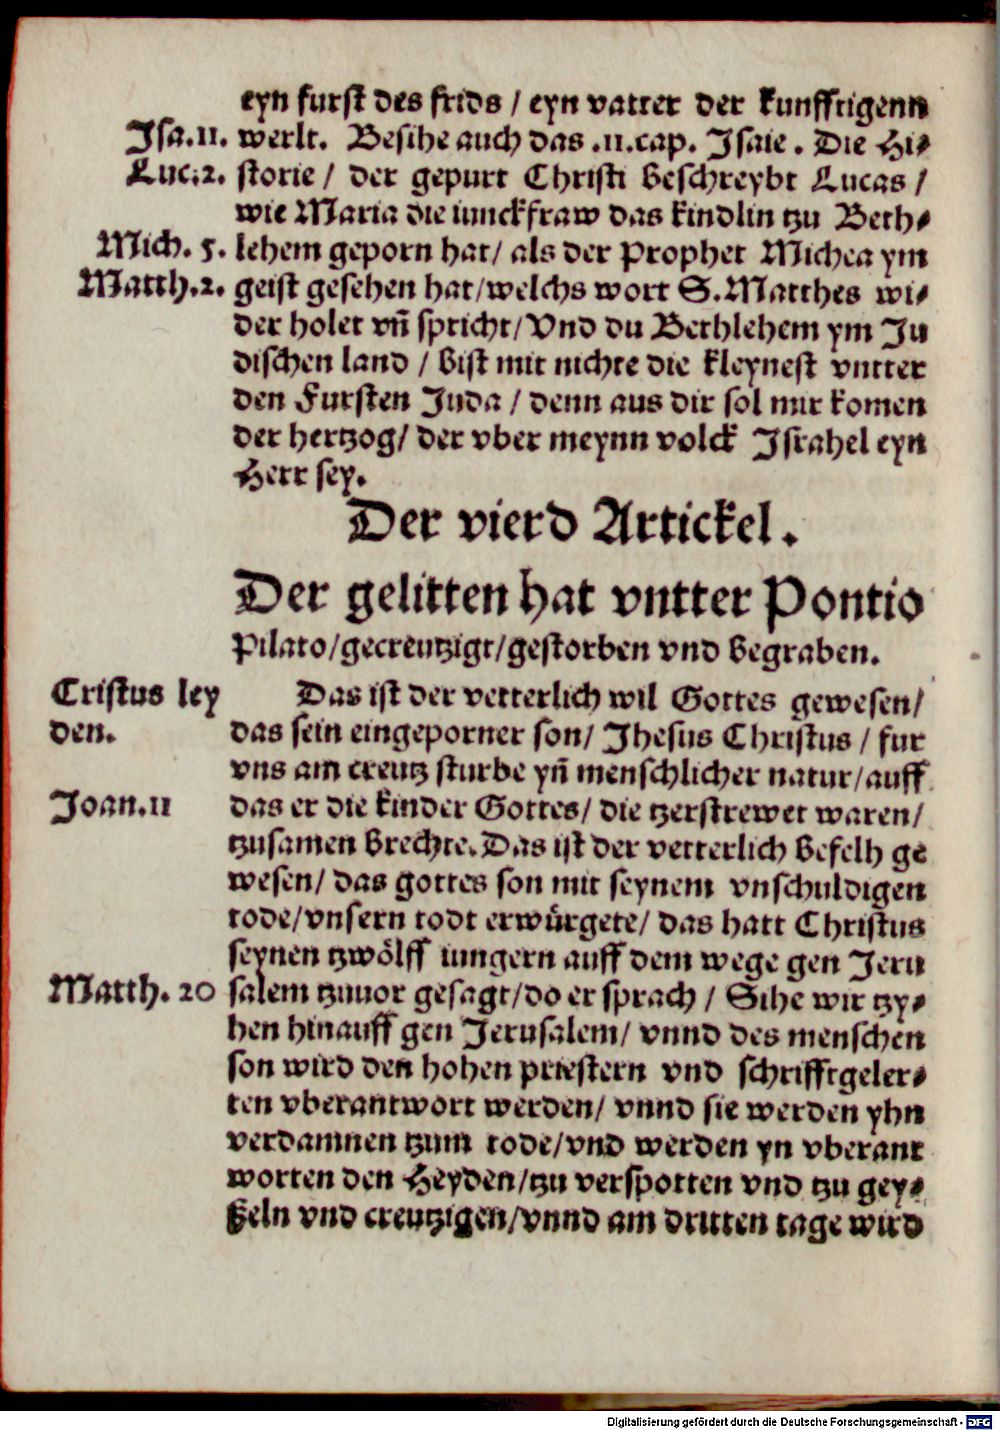 eyn furst des frids / eyn vatter der kunfftigenn
Jsa.11. werlt. Besihe auch das .11.cap. Jsaie . Die Hi⸗
Luc.2. storie / der gepurt Christi beschreybt Lucas /
wie Maria die iunckfraw das kindlin tzu Beth⸗
Mich. 5. lehem geporn hat/ als der Prophet Michea ym
Matth.2. geist gesehen hat/welchs wort S.Matthes wi⸗
der holet vñ spricht/Vnd du Bethlehem ym Ju
dischen land / bist mit nichte die kleynest vntter
den Fursten Juda / denn aus dir sol mir komen
der hertzog/ der vber meynn volck Jsrahel eyn
Herr sey.
Der vierd Artickel.
Der gelitten hat vntter Pontio
Pilato/gecreutzigt/gestorben vnd begraben.
Cristus ley Das ist der vetterlich wil Gottes gewesen/
den. das sein eingeporner son/ Jhesus Christus / fur
vns am creutz sturbe yñ menschlicher natur/auff
Joan.11 das er die kinder Gottes/ die tzerstrewet waren/
tzusamen brechte.Das ist der vetterlich befelh ge
wesen/ das gottes son mit seynem vnschuldigen
tode/vnsern todt erwürgete/ das hatt Christus
seynen tzwölff iungern auff dem wege gen Jeru
Matth. 20 salem tzuuor gesagt/do er sprach / Sihe wir tzy⸗
hen hinauff gen Jerusalem/ vnnd des menschen
son wird den hohen priestern vnd schrifftgeler⸗
ten vberantwort werden/ vnnd sie werden yhn
verdamnen tzum tode/vnd werden yn vberant
worten den Heyden/tzu verspotten vnd tzu gey⸗
ßeln vnd creutzigen/vnnd am dritten tage wird
Digitalisierung gefördert durch die Deutsche Forschungsgemeinschaft - DFG